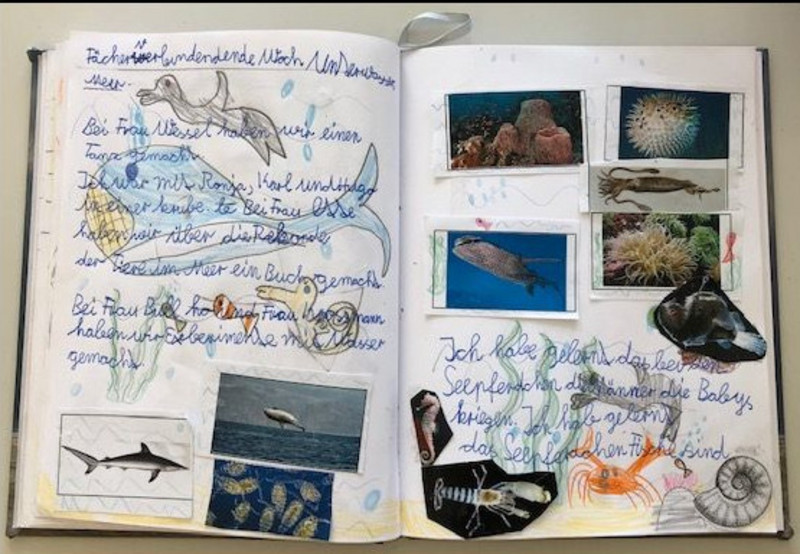 Fächerverbindendende Woch Unser
Meer.
Bei Frau Wessel haben wir einen
Tanz gemacht.
Ich war mit Ronja, Karl und Hugo
in einer Bei Frau
haben wir über die Rekorde
der Tiere im Meer ein Buch gemacht.
Bei Frau und Frau
haben wir Exberimente mit Wasser
gemacht.
Ich habe gelernt das bei den
Seepferdchn die Männer die Babys
kriegen. Ich habe gelernt
das Seepferdchen Fische sind